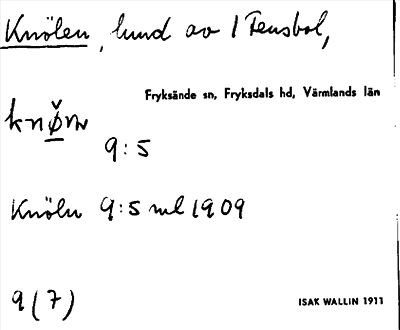 Knölen, lund av 1 Fensbol,
Fryksände sn, Fryksdals hd, Värmlands län
9:5
Knölen 9:5 ml 1909
9 (7)
ISAK WALLIN 1911